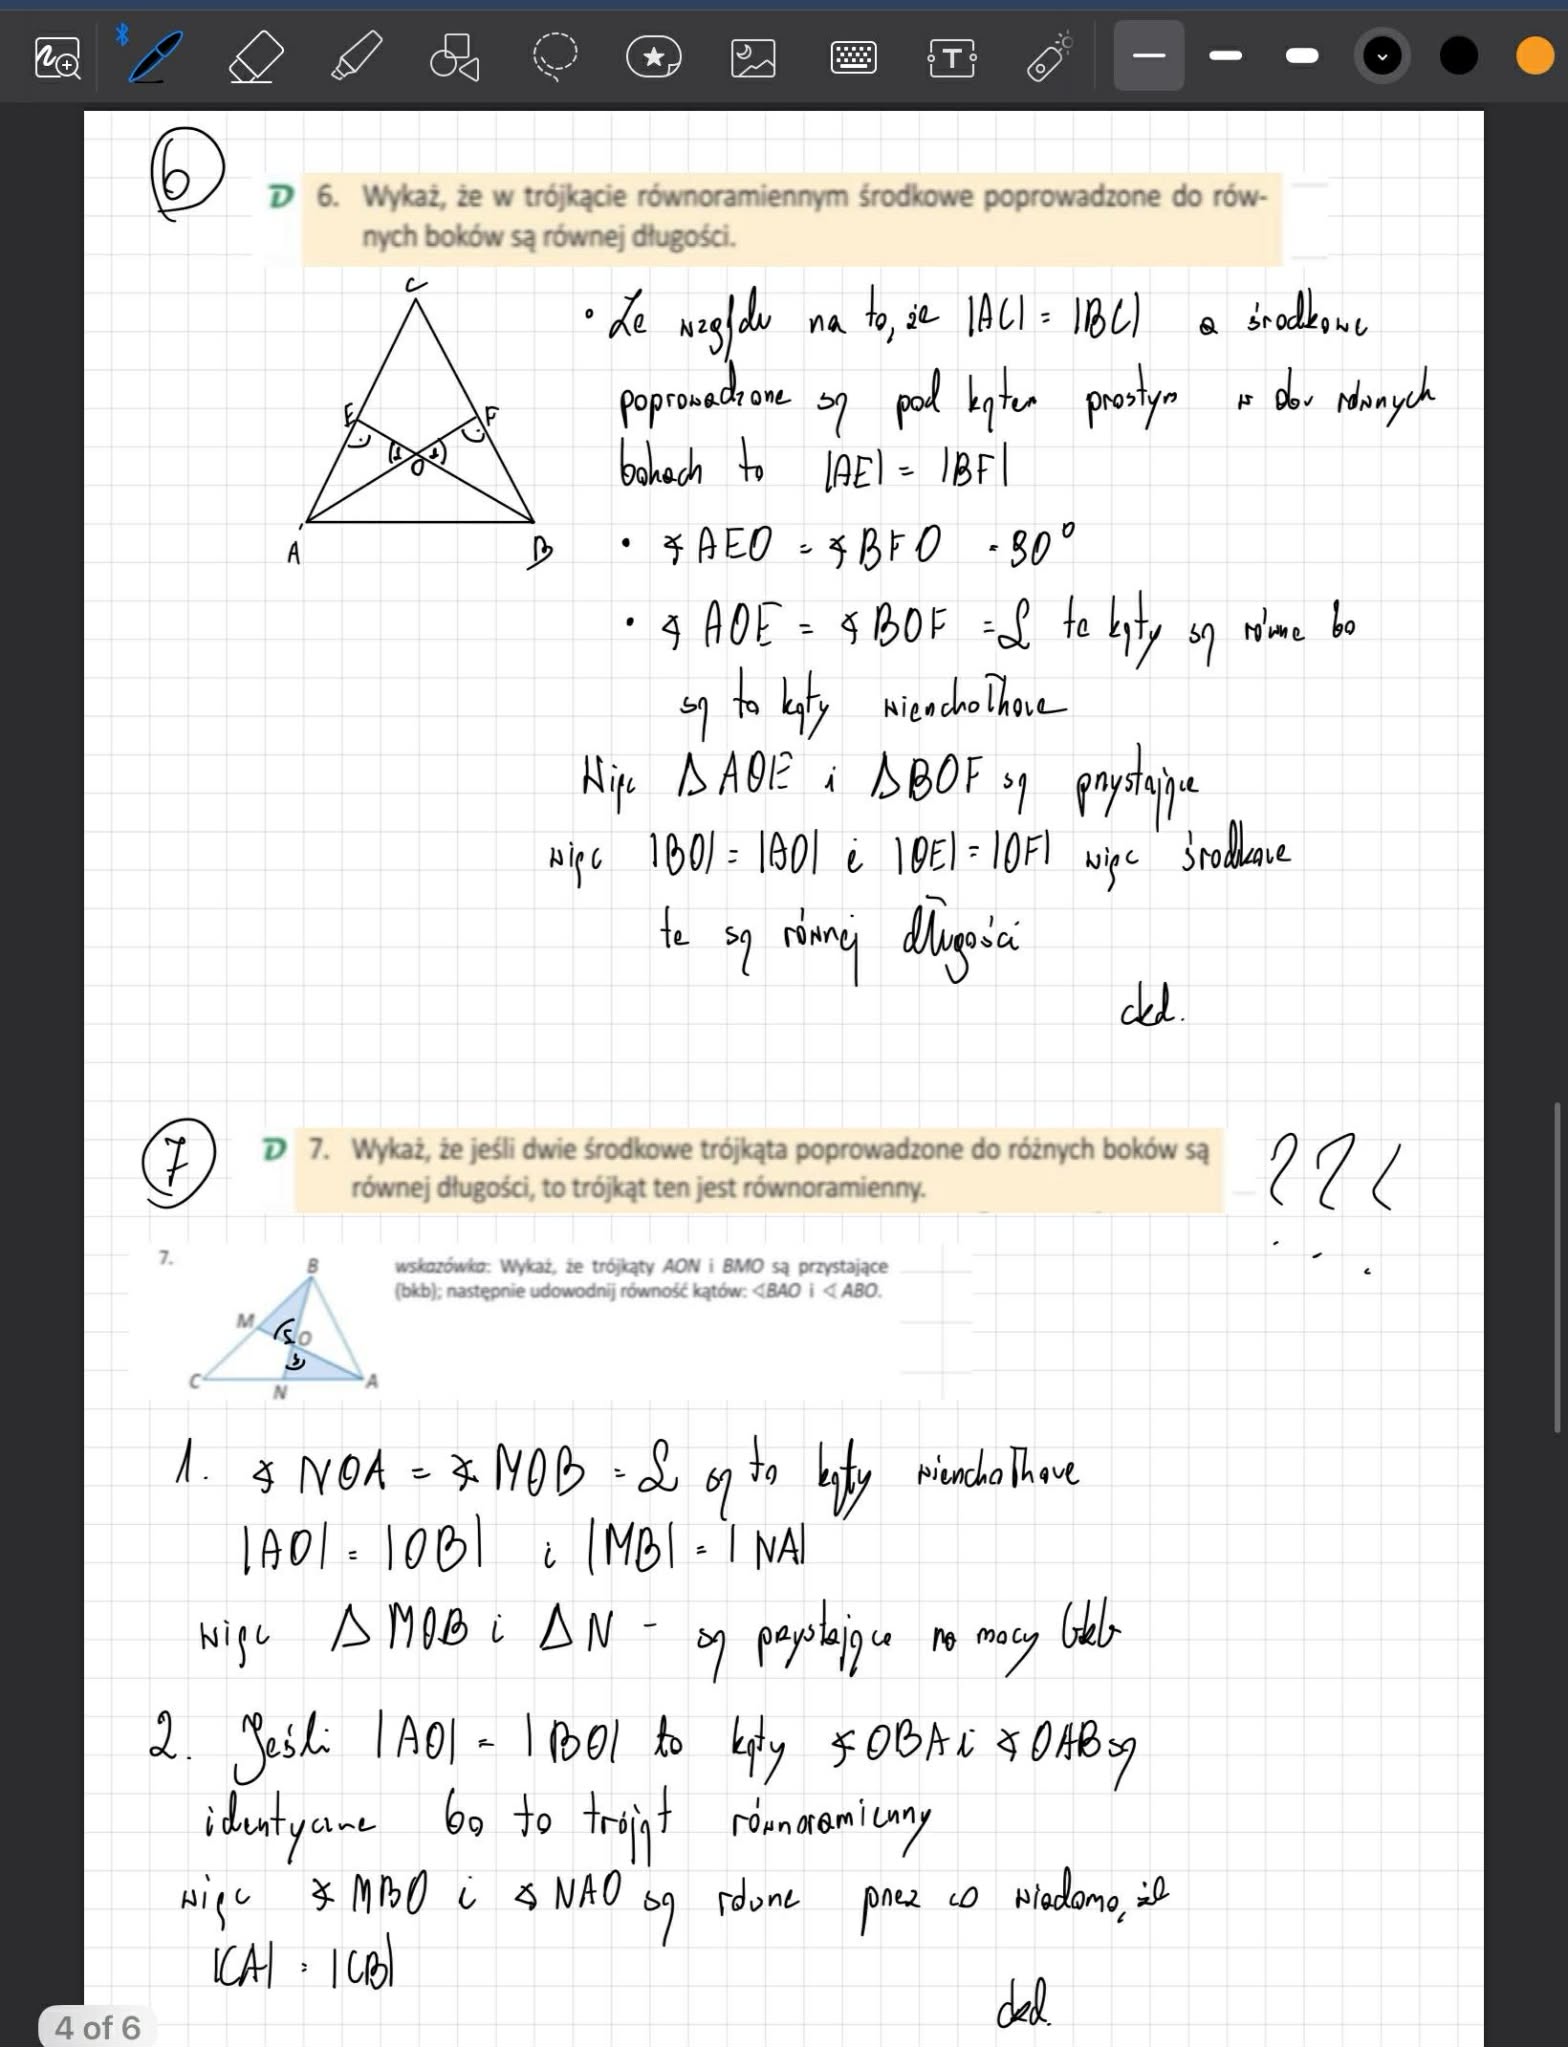 6
D 6. Wykaż, że w trójkącie równoramiennym środkowe poprowadzone do rów-
nych boków są równej długości.
C
E F
O
A B
• Ze względu na to, że |AC| = |BC| a środkowe
poprowadzone są pod kątem prostym w obu równych
bokach to |AE| = |BF|
• ∢ AEO = ∢ BFO = 90°
• ∢ AOE = ∢ BOF = α te kąty są równe bo
są to kąty wierzchołkowe
Więc Δ AOE i Δ BOF są przystające
więc |BO| = |AO| i |OE| = |OF| więc środkowe
te są równej długości
ckd.
7
D 7. Wykaż, że jeśli dwie środkowe trójkąta poprowadzone do różnych boków są
równej długości, to trójkąt ten jest równoramienny.
???
7.
wskazówka: Wykaż, że trójkąty AON i BMO są przystające
(bkb); następnie udowodnij równość kątów: ∢BAO i ∢ ABO.
B
M
O
C N A
1. ∢ NOA = ∢ MOB = α są to kąty wierzchołkowe
|AO| = |OB| i |MB| = |NA|
więc Δ MOB i Δ N - są przystające na mocy bkb
2. Jeśli |AO| = |BO| to kąty ∢ OBA i ∢ OAB są
identyczne bo to trójąt równoramienny
więc ∢ MBO i ∢ NAO są równe przez co wiadomo, że
|CA| = |CB|
ckd.
4 of 6